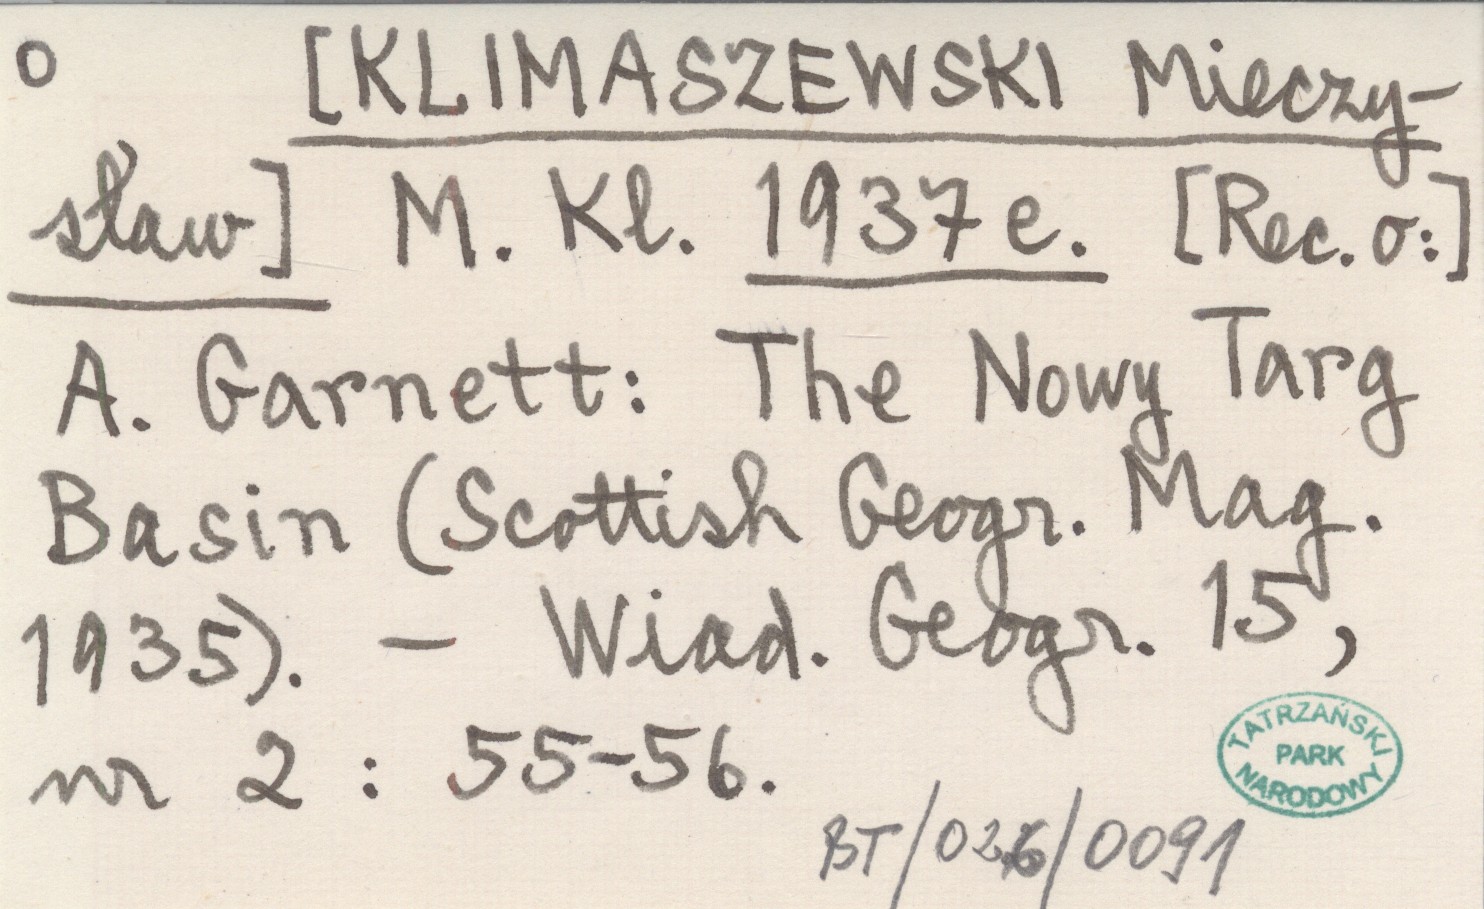 o [KLIMASZEWSKI Mieczy-
sław] M. Kl. 1937e. [Rec. o:]
A. Garnett: The Nowy Targ
Basin (Scottish Geogr. Mag.
1935). – Wiad. Geogr. 15,
nr 2 : 55-56.
TATRZAŃSKI
PARK
NARODOWY
BT/026/0091